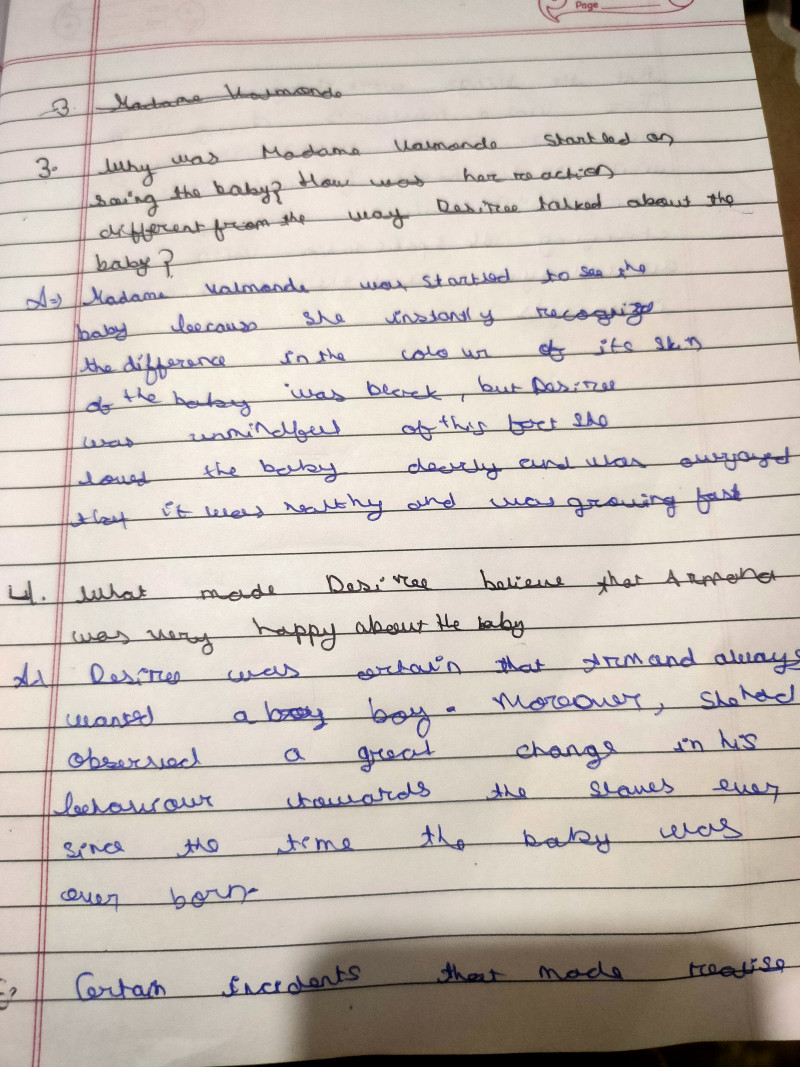 Page
3. Madame Valmonde
3. Why was Madame Valmonde startled on
saing the baby? How was her reaction
different from the way Desiree talked about the
baby?
A=) Madame Valmonde was startled to see the
baby because she instantly recognize
the difference in the colour of its skin
of the baby was black, but Desiree
was unmindful of this fact she
loved the baby dearly and was overjoyed
that it was healthy and was growing fast
4. What made Desiree believe that Armand
was very happy about the baby
A) Desiree was certain that Armand always
wanted a boy boy. Moreover, she had
observed a great change in his
behaviour towards the slaves ever
since the time the baby was
ever born.
Certain incidents that made realise